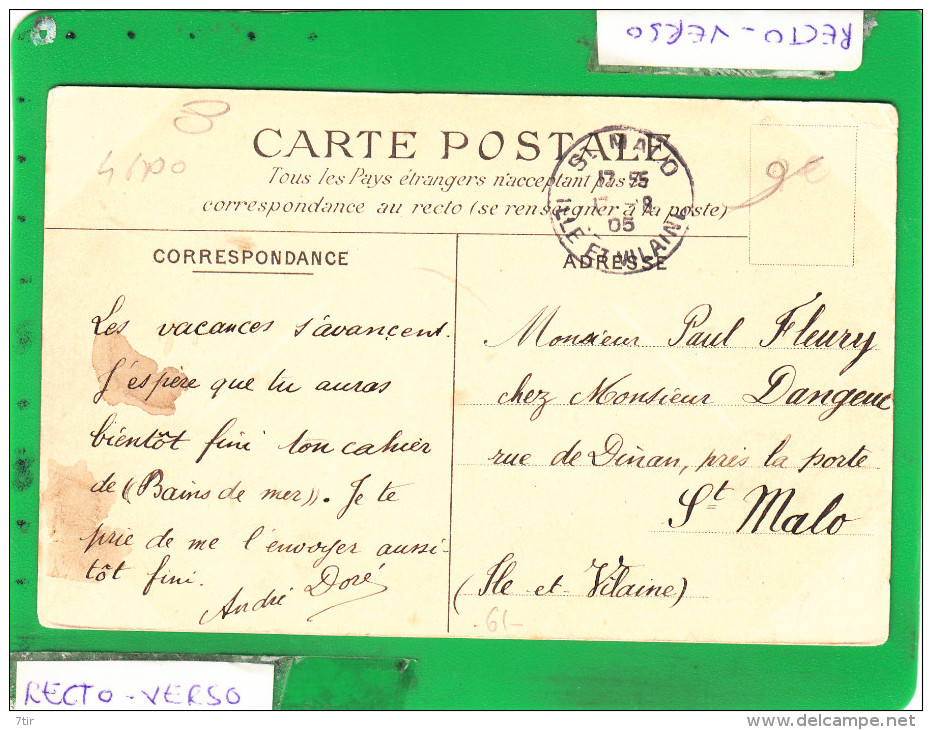 RECTO - VERSO
CARTE POSTALE
Tous les Pays étrangers n'acceptent pas la
correspondance au recto (se renseigner à la poste)
ST MALO
17 35
8
05
ILLE ET VILAINE
9€
CORRESPONDANCE
Les vacances s'avancent.
J'espère que tu auras
bientôt fini ton cahier
de «Bains de mer». Je te
prie de me l'envoyer aussi-
tôt fini.
André Doré
ADRESSE
Monsieur Paul Fleury
chez Monsieur Dangeue
rue de Dinan, près la porte
St Malo
(Ile et Vilaine)
-61-
RECTO - VERSO
7tir
www.delcampe.net